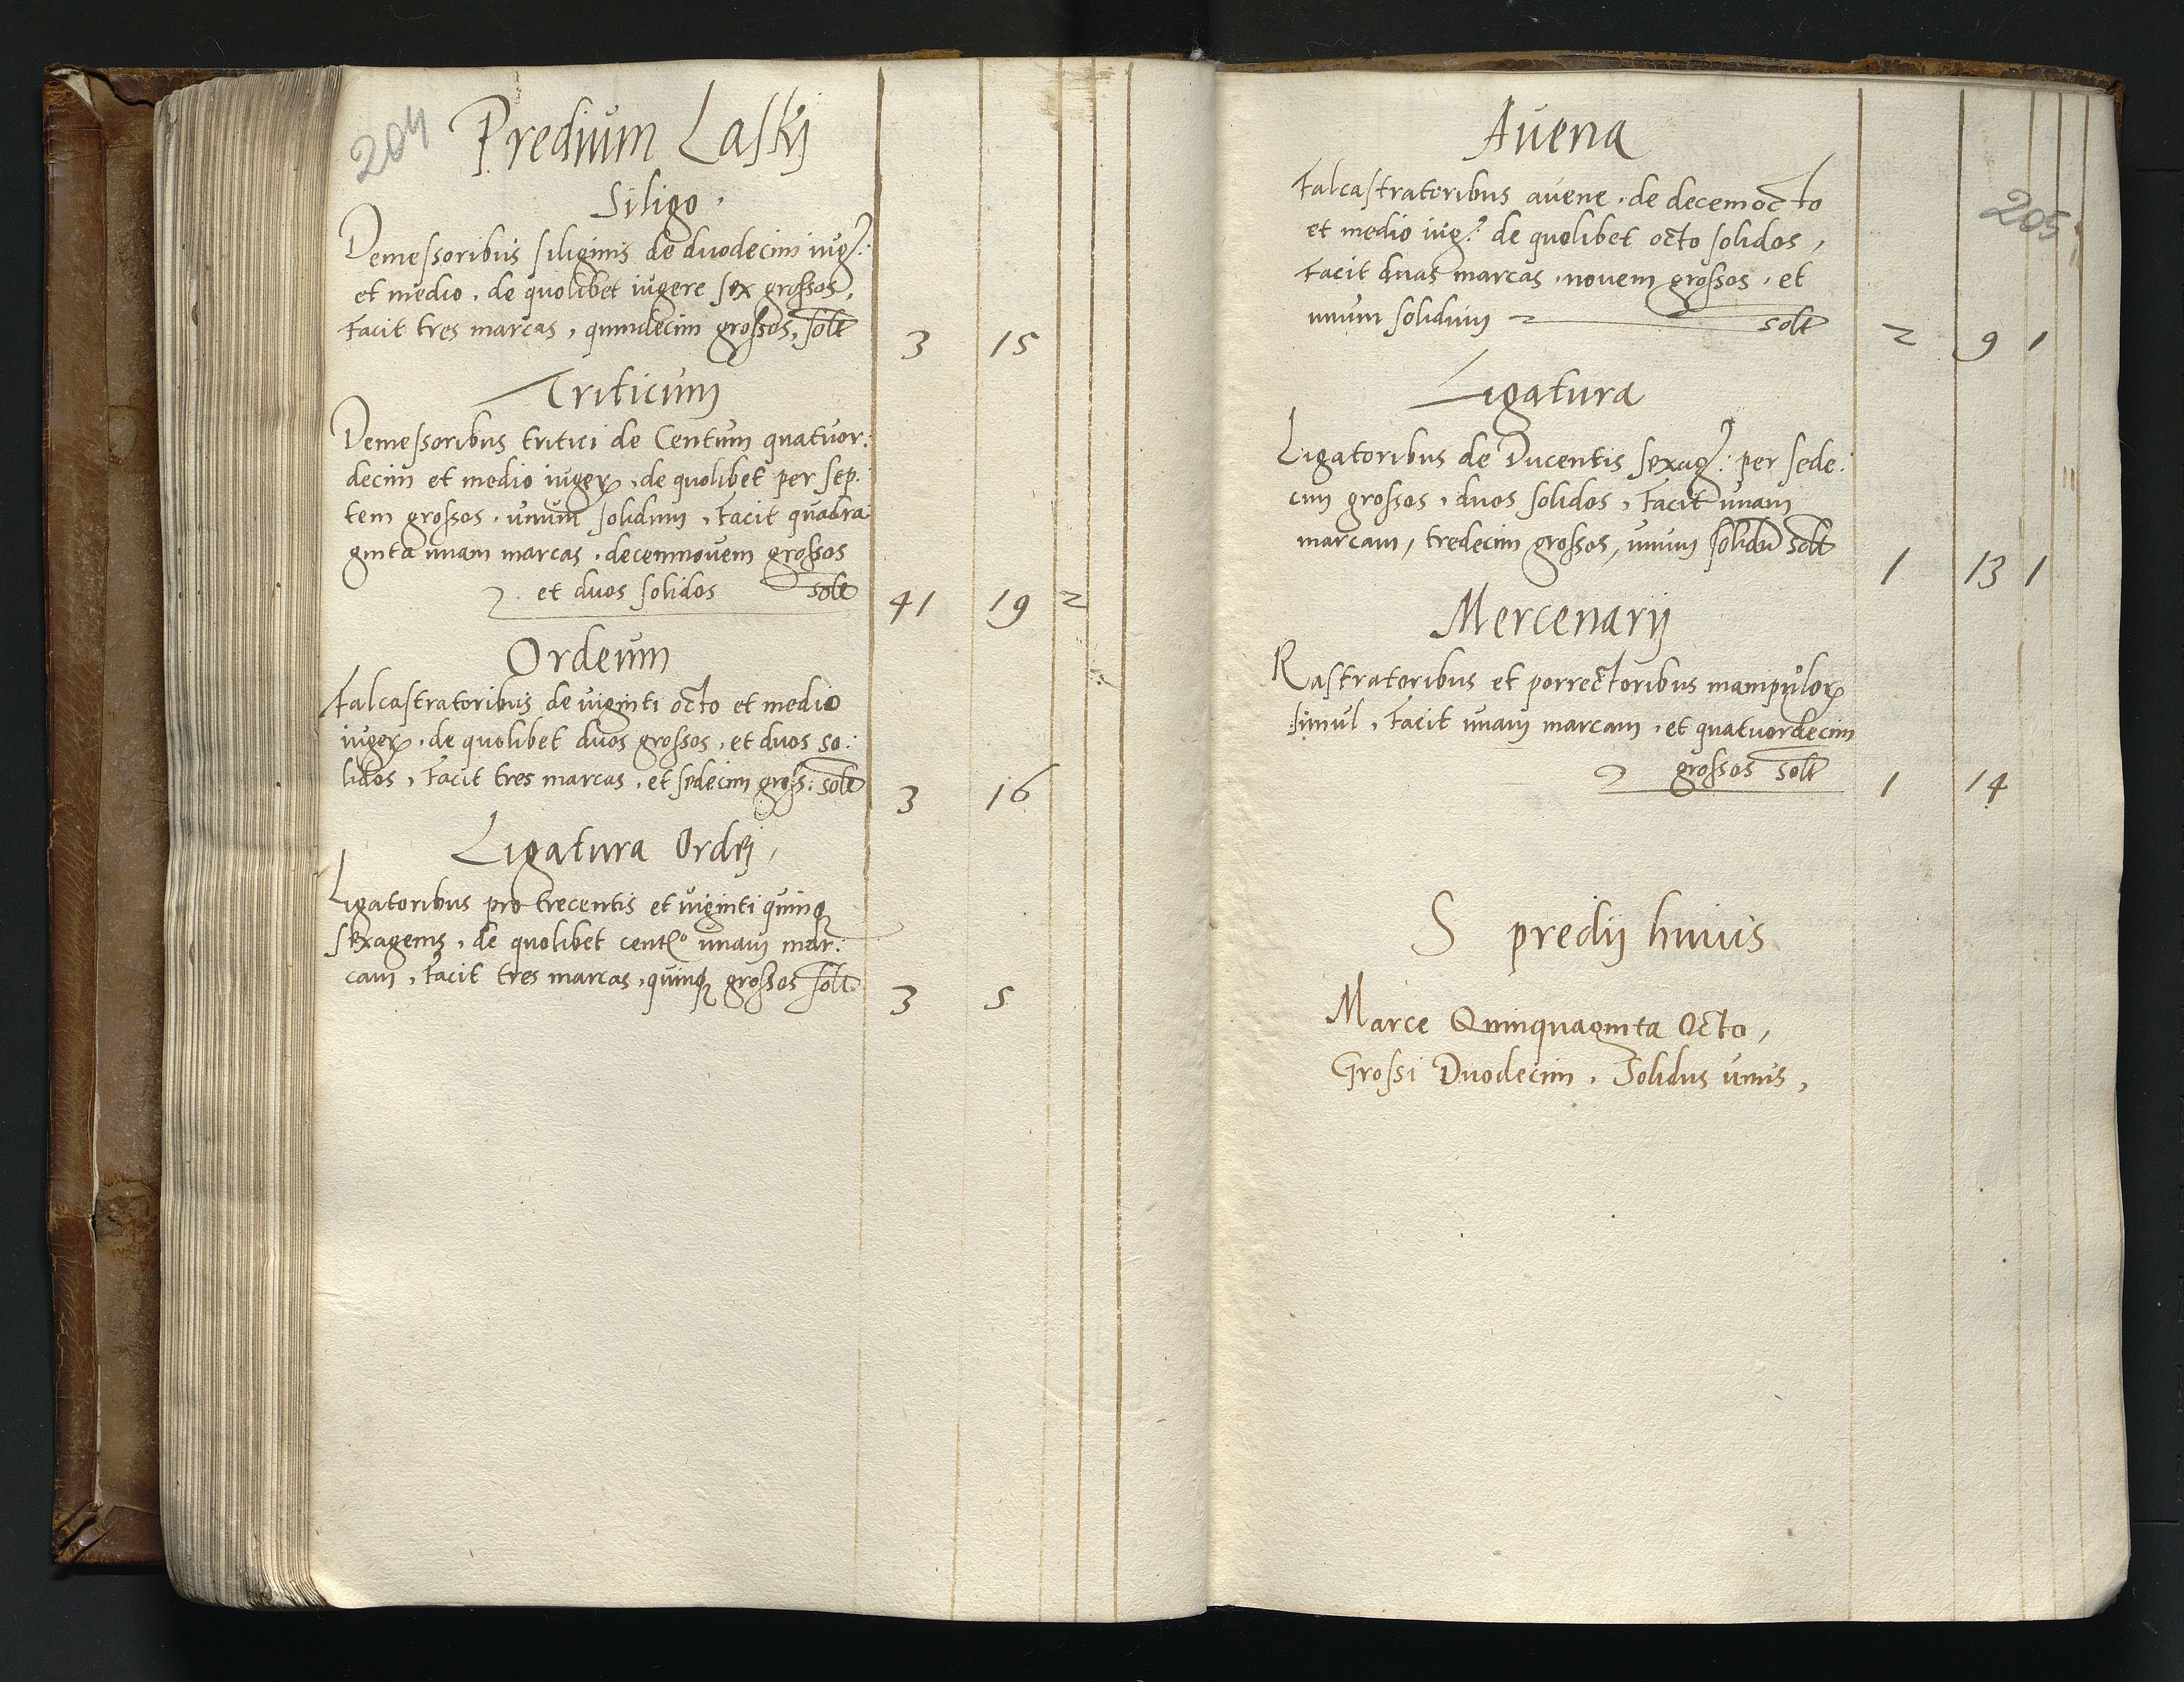 204
Predium Laskij
Siligo.
Demessoribus siliginis de duodecim iug:
et medio, de quolibet iugere sex grossos,
Facit tres marcas, quindecim grossos, solt 3 15
Triticum
Demessoribus tritici de Centum quatuor:
decim et medio iugeꝝ, de quolibet per sep:
tem grossos, unum solidum, Facit quadra
ginta unam marcas, decemnovem grossos
et duos solidos solt 41 19 2
Ordeum
Falcastratoribus de viginti octo et medio
iugeꝝ, de quolibet duos grossos, et duos so:
lidos, Facit tres marcas, et sedecim gross: solt 3 16
Ligatura Ordej,
Ligatoribus pro trecentis et viginti quinqꝫ
sexagenis, de quolibet centᵒ unam mar:
cam, Facit tres marcas, quinqꝫ grossos solt 3 5
205
Auena
Falcastratoribus avene, de decemocto
et medio iug: de quolibet octo solidos,
Facit duas marcas, novem grossos, et
unum solidum solt 2 9 1
Ligatura
Ligatoribus de Ducentis sexag: per sede:
cim grossos, duos solidos, Facit unam
marcam, tredecim grossos, unum solidū solt 1 13 1
Mercenarij
Rastratoribus et porrectoribus manipuloꝝ
simul, Facit unam marcam, et quatuordecim
grossos solt 1 14
S predij huius
Marce Quinquaginta Octo,
Grossi Duodecim, Solidus unus,